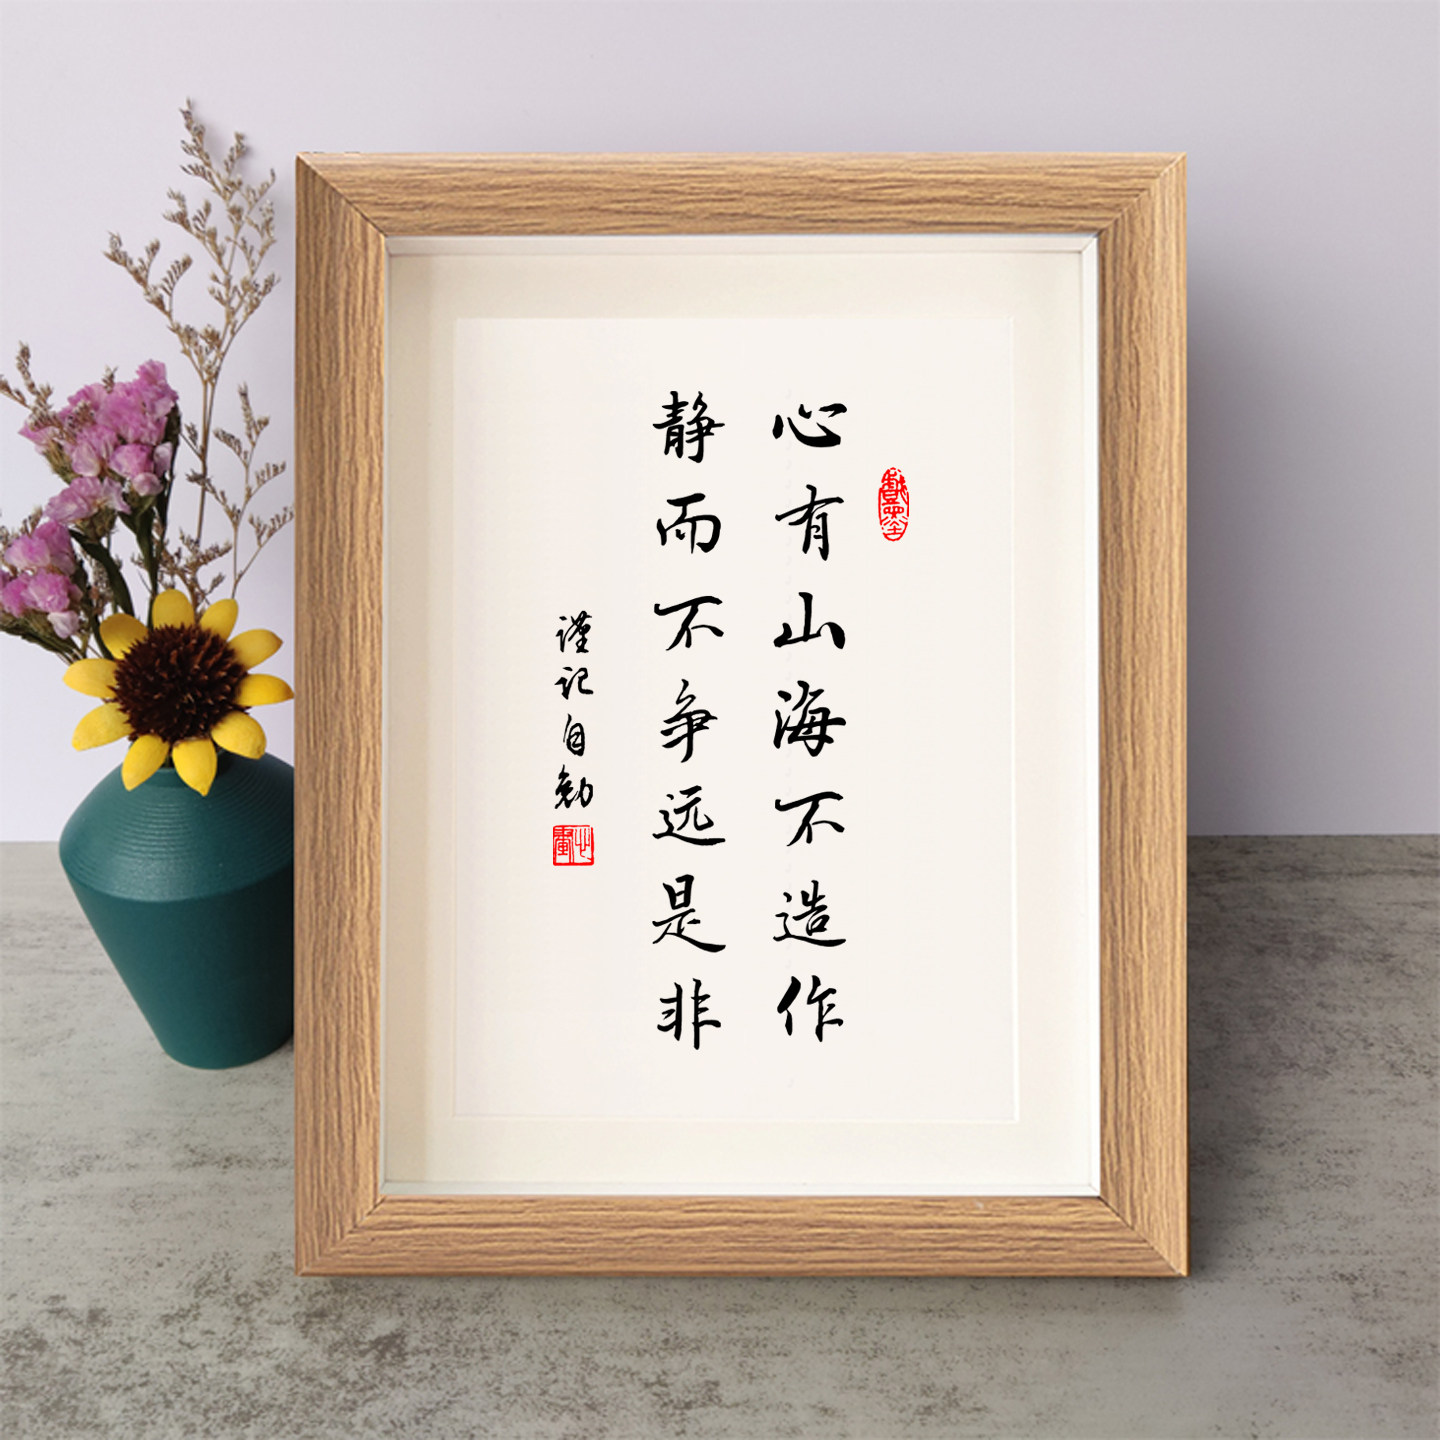 心有山海不造作
静而不争远是非
谨记自勉